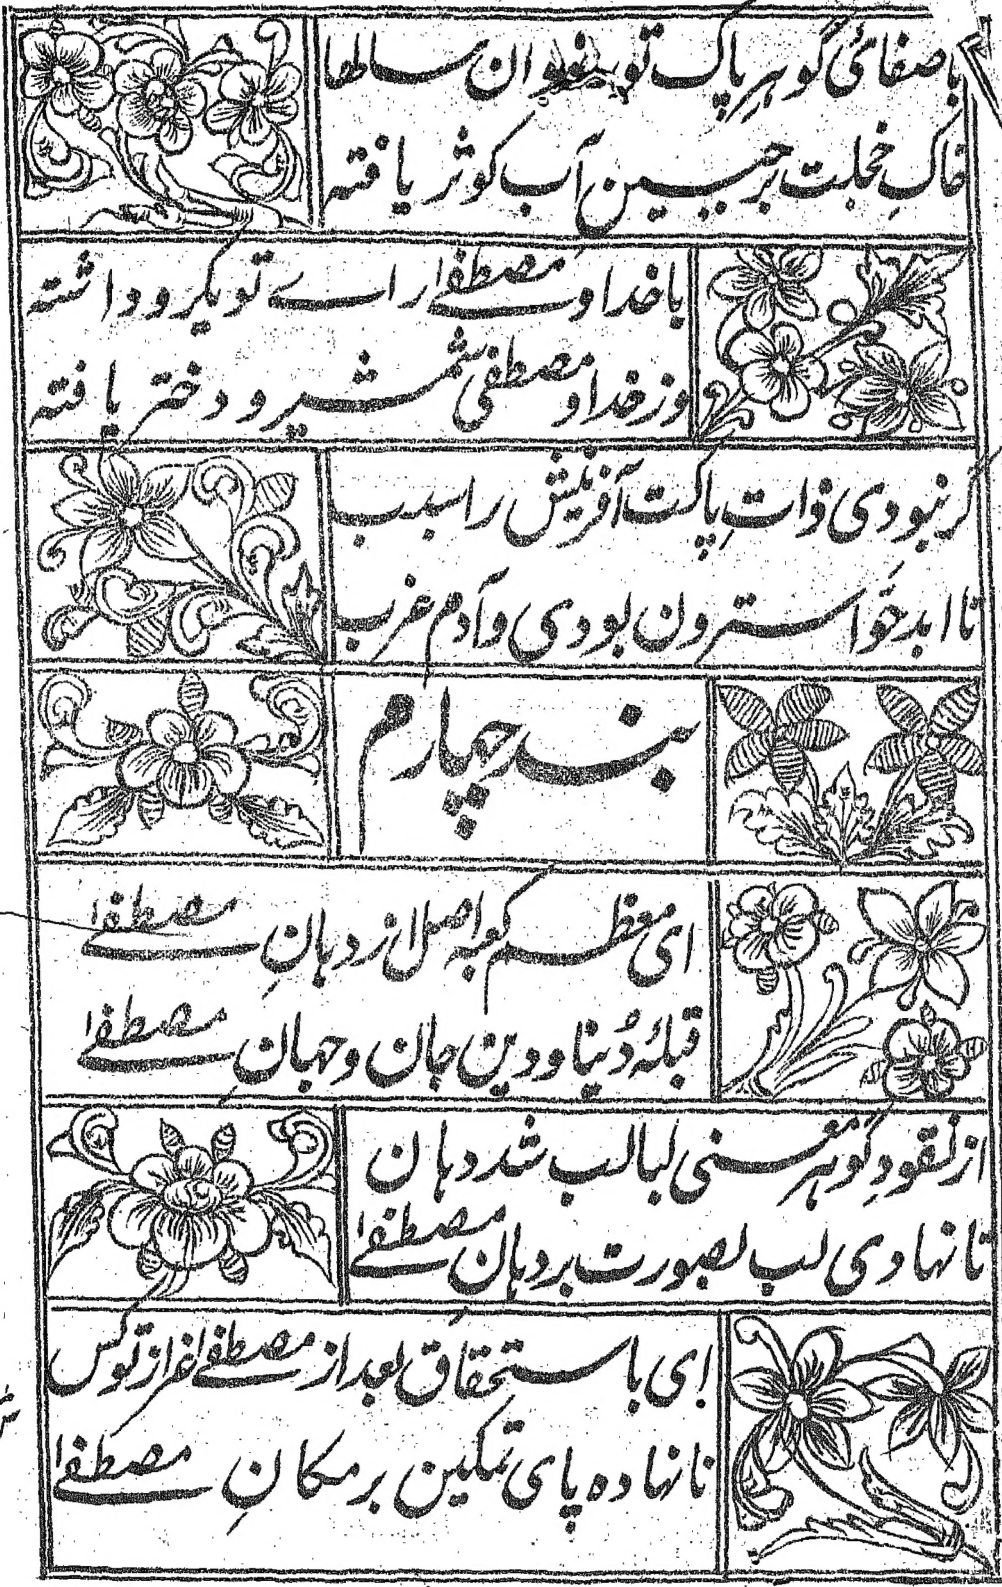 با صفائی گوہرِ پاک تو ان سالها
خاکِ خجلت بر جبین آب کوثر یافته
با خدا و مصطفےٰ رای تو یکرو داشته
وز خدا و مصطفی شمشیر و دختر یافته
گر نبودی ذاتِ پاکت آفرینش را سبب
تا ابد حوّا سترون بودی و آدم عزب
بند چہارم
ای معظم کعبه اصل از دہانِ مصطفےٰ
قبلۂ دُنیا و دین جان و جہانِ مصطفےٰ
از نقودِ گوہر معنی لبالب شد دہان
تا نہادی لب بصورت بر دہان مصطفےٰ
ای باستحقاق بعد از مصطفےٰ غیر از تو کس
نانہاده پای تمکین بر مکانِ مصطفےٰ